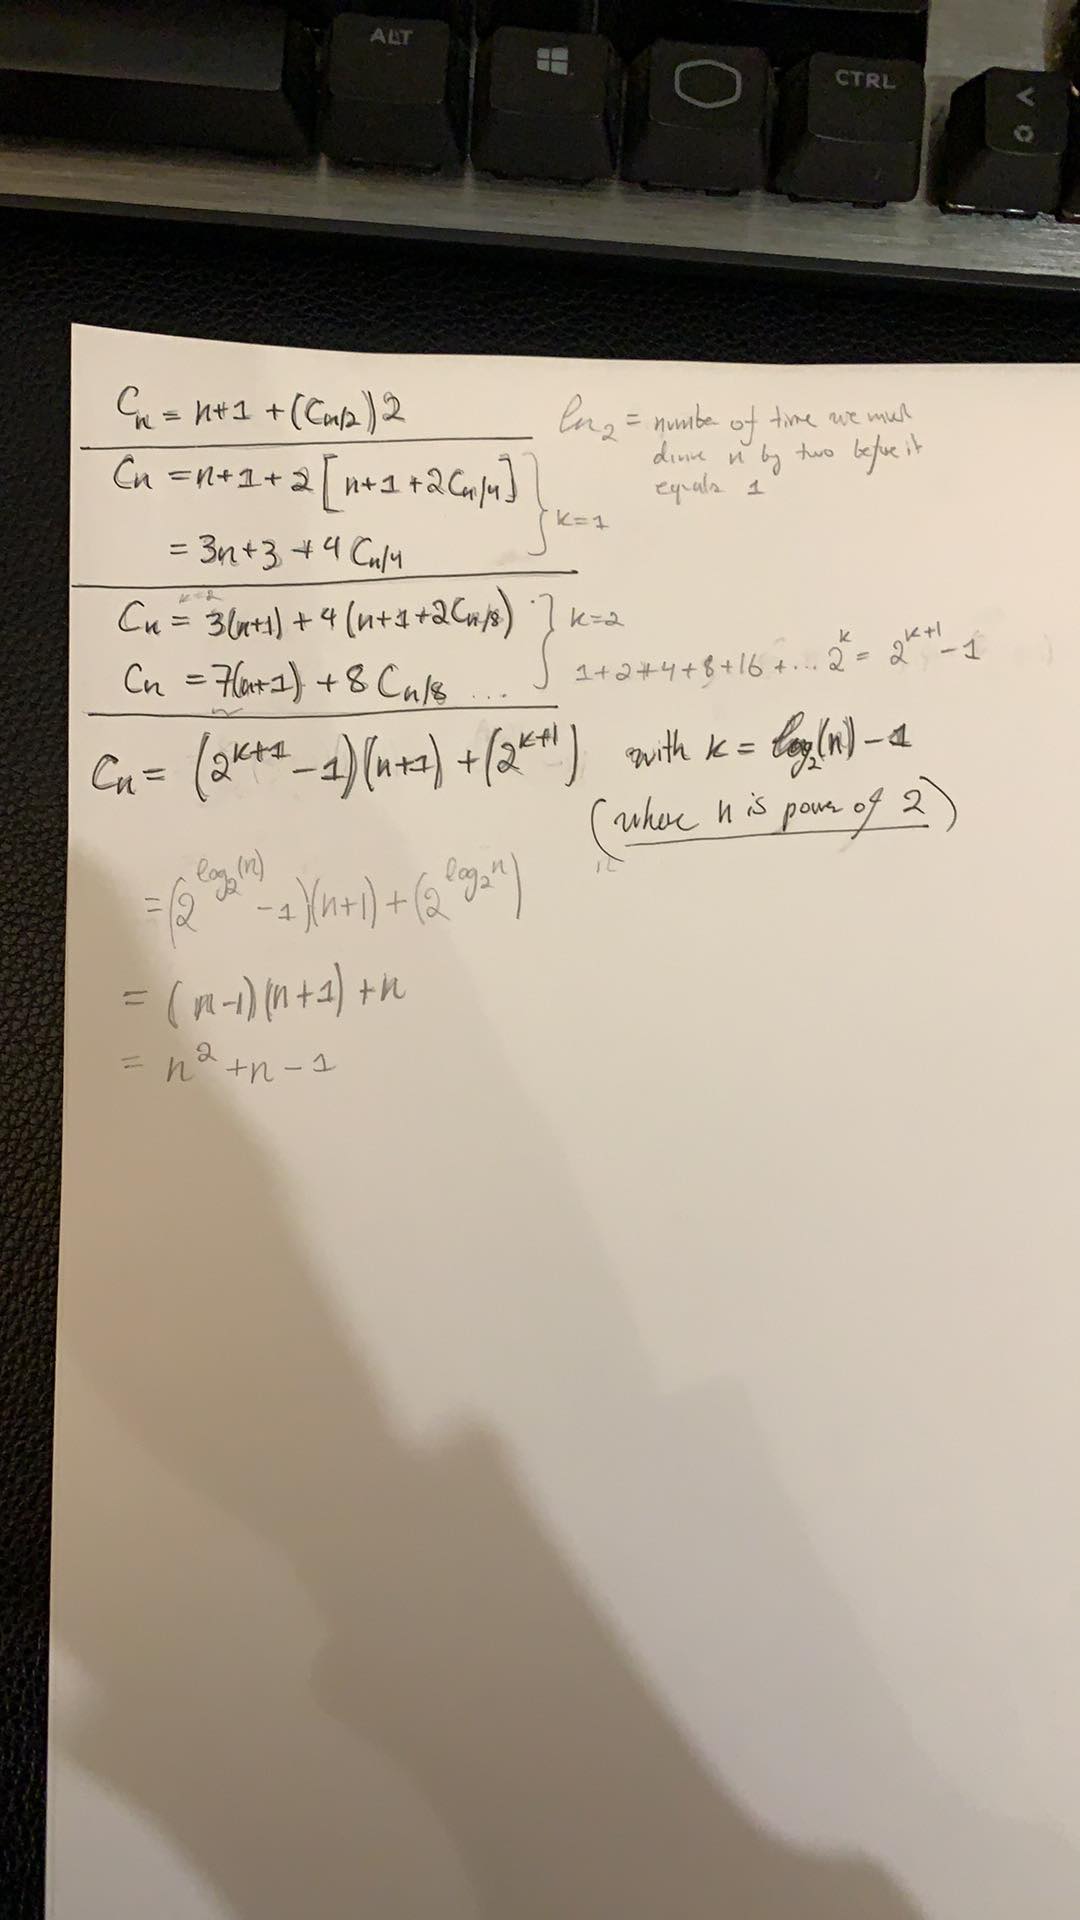 ALT
CTRL
<
Cn = n+1 + (Cn/2)2
ln2 = number of time we must
divive n by two before it
equals 1
Cn = n+1+2[n+1+2Cn/4]
k=1
= 3n+3+4Cn/4
k=2
Cn = 3(n+1)+4(n+1+2Cn/8)
k=2
Cn = 7(n+1)+8Cn/8 ...
1+2+4+8+16+...2^k = 2^(k+1)-1
Cn = (2^(k+1)-1)(n+1)+(2^(k+1)) with k = log2(n)-1
(where n is power of 2)
=(2^(log2(n))-1)(n+1)+(2^(log2 n))
= (n-1)(n+1)+n
= n²+n-1